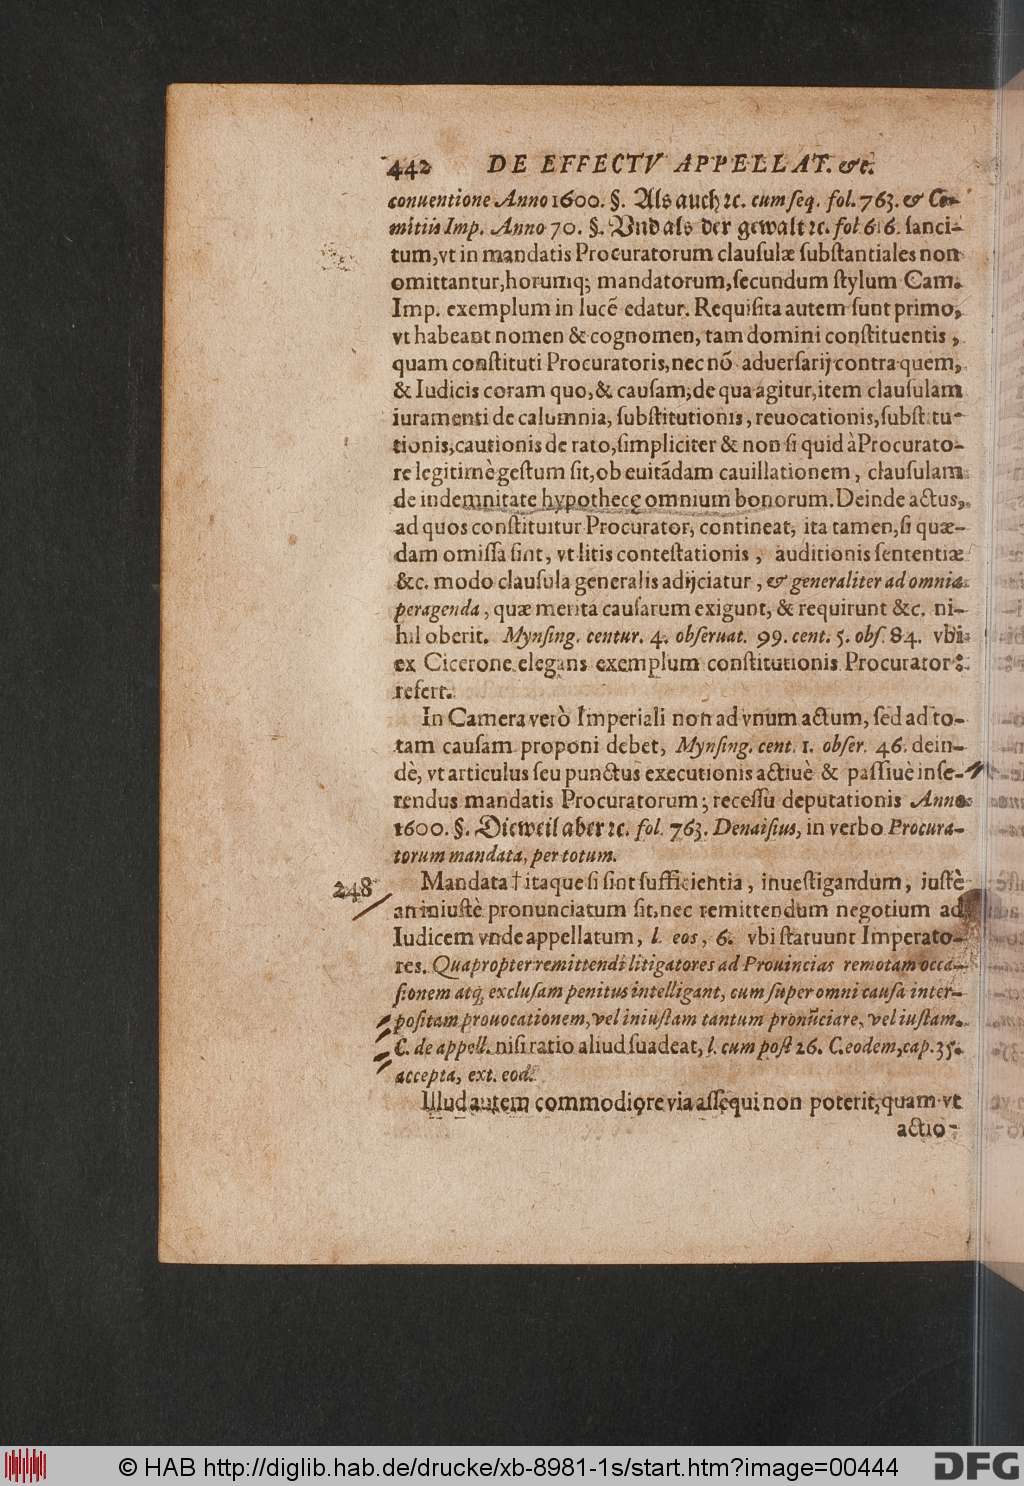 442 DE EFFECTV APPELLAT. &c.
conuentione Anno 1600. §. Als auch ꝛc. cum seq. fol. 763. & Co-
mitiis Imp. Anno 70. §. Vnd als der gewalt ꝛc. fol 616. sanci-
tum, vt in mandatis Procuratorum clausulæ substantiales non
omittantur, horumq; mandatorum, secundum stylum Cam.
Imp. exemplum in lucē edatur. Requisita autem sunt primo,
vt habeant nomen & cognomen, tam domini constituentis,
quam constituti Procuratoris, nec nō aduersarij contra quem,
& Iudicis coram quo, & causam, de qua agitur, item clausulam
iuramenti de calumnia, substitutionis, reuocationis, substitu-
tionis, cautionis de rato, simpliciter & non si quid à Procurato-
re legitimè gestum sit, ob euitādam cauillationem, clausulam
de indemnitate hypothecę omnium bonorum. Deinde actus,
ad quos constituitur Procurator, contineat, ita tamen, si quæ-
dam omissa sint, vt litis contestationis, auditionis sententiæ
&c. modo clausula generalis adijciatur, & generaliter ad omnia
peragenda, quæ merita causarum exigunt, & requirunt &c. ni-
hil oberit. Mynsing. centur. 4. obseruat. 99. cent. 5. obs. 84. vbi
ex Cicerone elegans exemplum constitutionis Procurator:
refert.
In Camera verò Imperiali non ad vnum actum, sed ad to-
tam causam proponi debet, Mynsing. cent. 1. obser. 46. dein-
dè, vt articulus seu punctus executionis actiuè & passiuè inse-
rendus mandatis Procuratorum; recessu deputationis Anno
1600. §. Dieweil aber ꝛc. fol. 763. Denaisius, in verbo Procura-
torum mandata, per totum.
248 Mandata † itaque si sint sufficientia, inuestigandum, iustè
an iniustè pronunciatum sit, nec remittendum negotium ad
Iudicem vnde appellatum, l. eos, 6. vbi statuunt Imperato-
res. Quapropter remittendi litigatores ad Prouincias remotam occa-
sionem atq; exclusam penitus intelligant, cum super omni causa inter-
positam prouocationem, vel iniustam tantum pronūciare, vel iustam.
C. de appell. nisi ratio aliud suadeat, l. cum post 26. C. eodem, cap. 35.
accepta, ext. eod.
Illud autem commodiore via assequi non poterit, quam vt
actio-
© HAB http://diglib.hab.de/drucke/xb-8981-1s/start.htm?image=00444
DFG